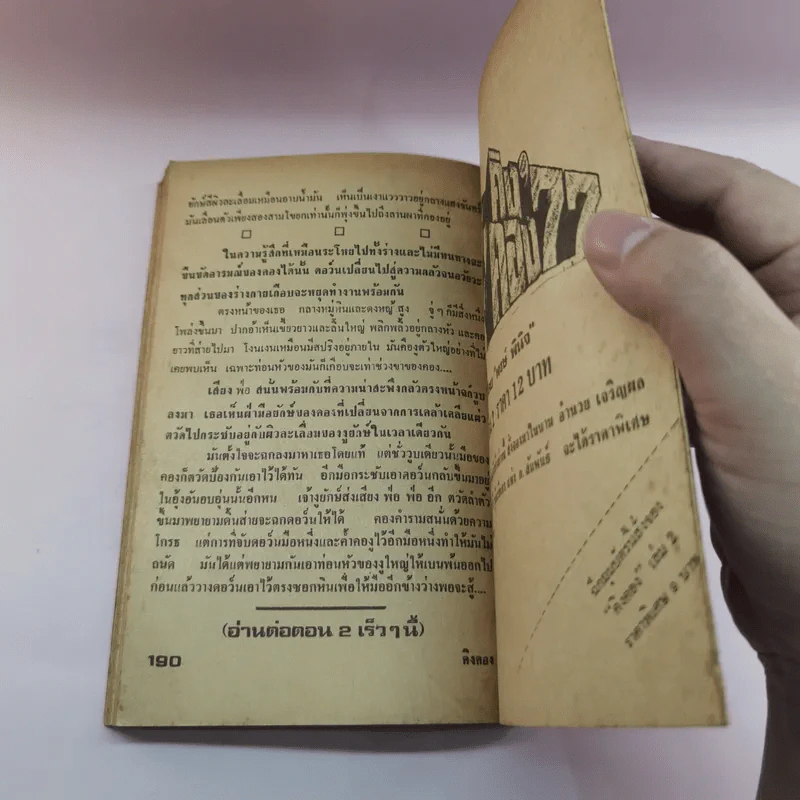 ยักษ์สีผิวละเลื่อมเหมือนอาบน้ำมัน เห็นเป็นเงาแวววาวอยู่กลางแสงจันทร์
มันเลื้อนตัวเพียงสองสามโขยกเท่านั้นก็พุ่งขึ้นไปถึงลานผาที่กองอยู่
ในความรู้สึกที่เหมือนระโหยไปทั้งร่างและไม่มีหนทางจะ
ขืนขัดอารมณ์ของคองได้นั้น ดอว์นเปลี่ยนไปสู่ความกลัวจนอวัยวะ
ทุกส่วนของร่างกายเกือบจะหยุดทำงานพร้อมกัน
ตรงหน้าของเธอ กลางหมู่หินและดงหญ้าสูง จู่ๆ ก็มีสิ่งหนึ่ง
โผล่งขึ้นมา ปากอ้าเห็นเขี้ยวยาวและลิ้นใหญ่ พลิกพลิ้วอยู่กลางหัว และคอ
ยาวที่ส่ายไปมา โงนเงนเหมือนมีสปริงอยู่ภายใน มันคืองูตัวใหญ่อย่างที่ไม่
เคยพบเห็น เฉพาะท่อนหัวของมันก็เกือบจะเท่าช่วงขาของคอง....
เสียง ฟ่อ สนั่นพร้อมกับที่ความน่าสะพึงกลัวตรงหน้าฉกวูบ
ลงมา เธอเห็นฝ่ามือยักษ์ของคองที่เปลี่ยนจากการเคล้าเคลียแผ่ว
ตวัดไปกระชับอยู่กับผิวละเลื่อมของงูยักษ์ในเวลาเดียวกัน
มันตั้งใจจะฉกลงมาหาเธอโดยแท้ แต่ชั่ววูบเดียวนั้นมือของ
คองก็ตวัดป้องกันเอาไว้ได้ทัน อีกมือกระชับเอาดอว์นกลับขึ้นมาอยู่
ในอุ้งอันอบอุ่นนั้นอีกหน เจ้างูยักษ์ส่งเสียง ฟ่อ ฟ่อ อีก ตวัดลำตัว
ขึ้นมาพยายามดิ้นส่ายจะฉกดอว์นให้ได้ คองคำรามสนั่นด้วยความ
โกรธ แต่การที่จับดอว์นมือหนึ่งและค้ำคองูไว้อีกมือหนึ่งทำให้มันไม่
ถนัด มันได้แต่พยายามกันเอาท่อนหัวของงูใหญ่ให้เบนพ้นออกไป
ก่อนแล้ววางดอว์นเอาไว้ตรงซอกหินเพื่อให้มืออีกข้างว่างพอจะสู้....
(อ่านต่อตอน 2 เร็วๆนี้)
190 คิงคอง
คิง
คอง'77
พินิจ"
ราคา 12 บาท
อำนวย เจริญผล
จะได้ราคาพิเศษ
"คิงคอง" เล่ม 2
ราคาพิเศษ 9 บาท